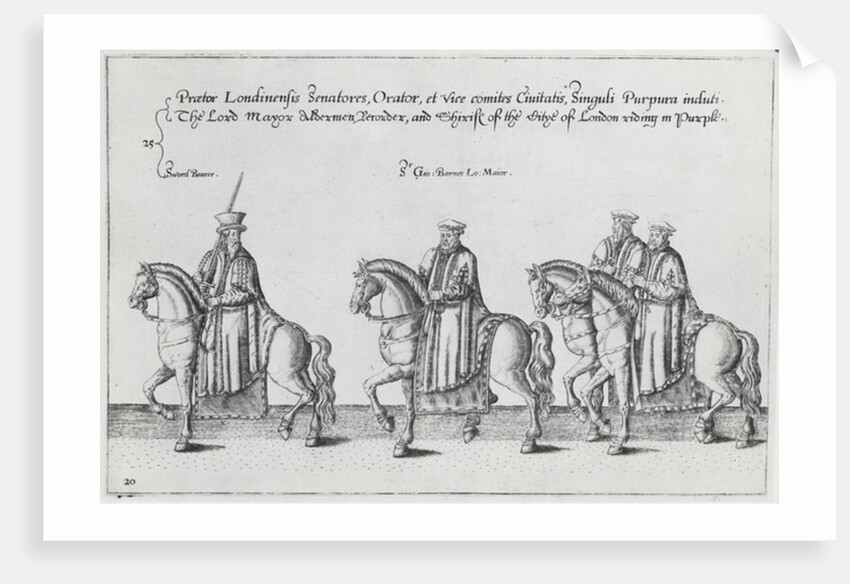 Prætor Londinensis Senatores, Orator, et Vice comites Civitatis, Singuli Purpura induti.
The Lord Mayor Aldermen, Recorder, and Shirifs of the Citye of London riding in Purple.
25
Sword Bearer.
Sr Geo: Barnes Lo: Maior.
20